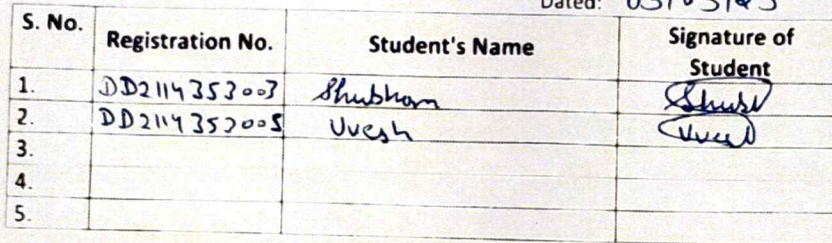 Dated: 03/05/23
S. No. Registration No. Student's Name Signature of Student
1. DD2114353003 Shubham
2. DD2114353005 Uvesh
3.
4.
5.